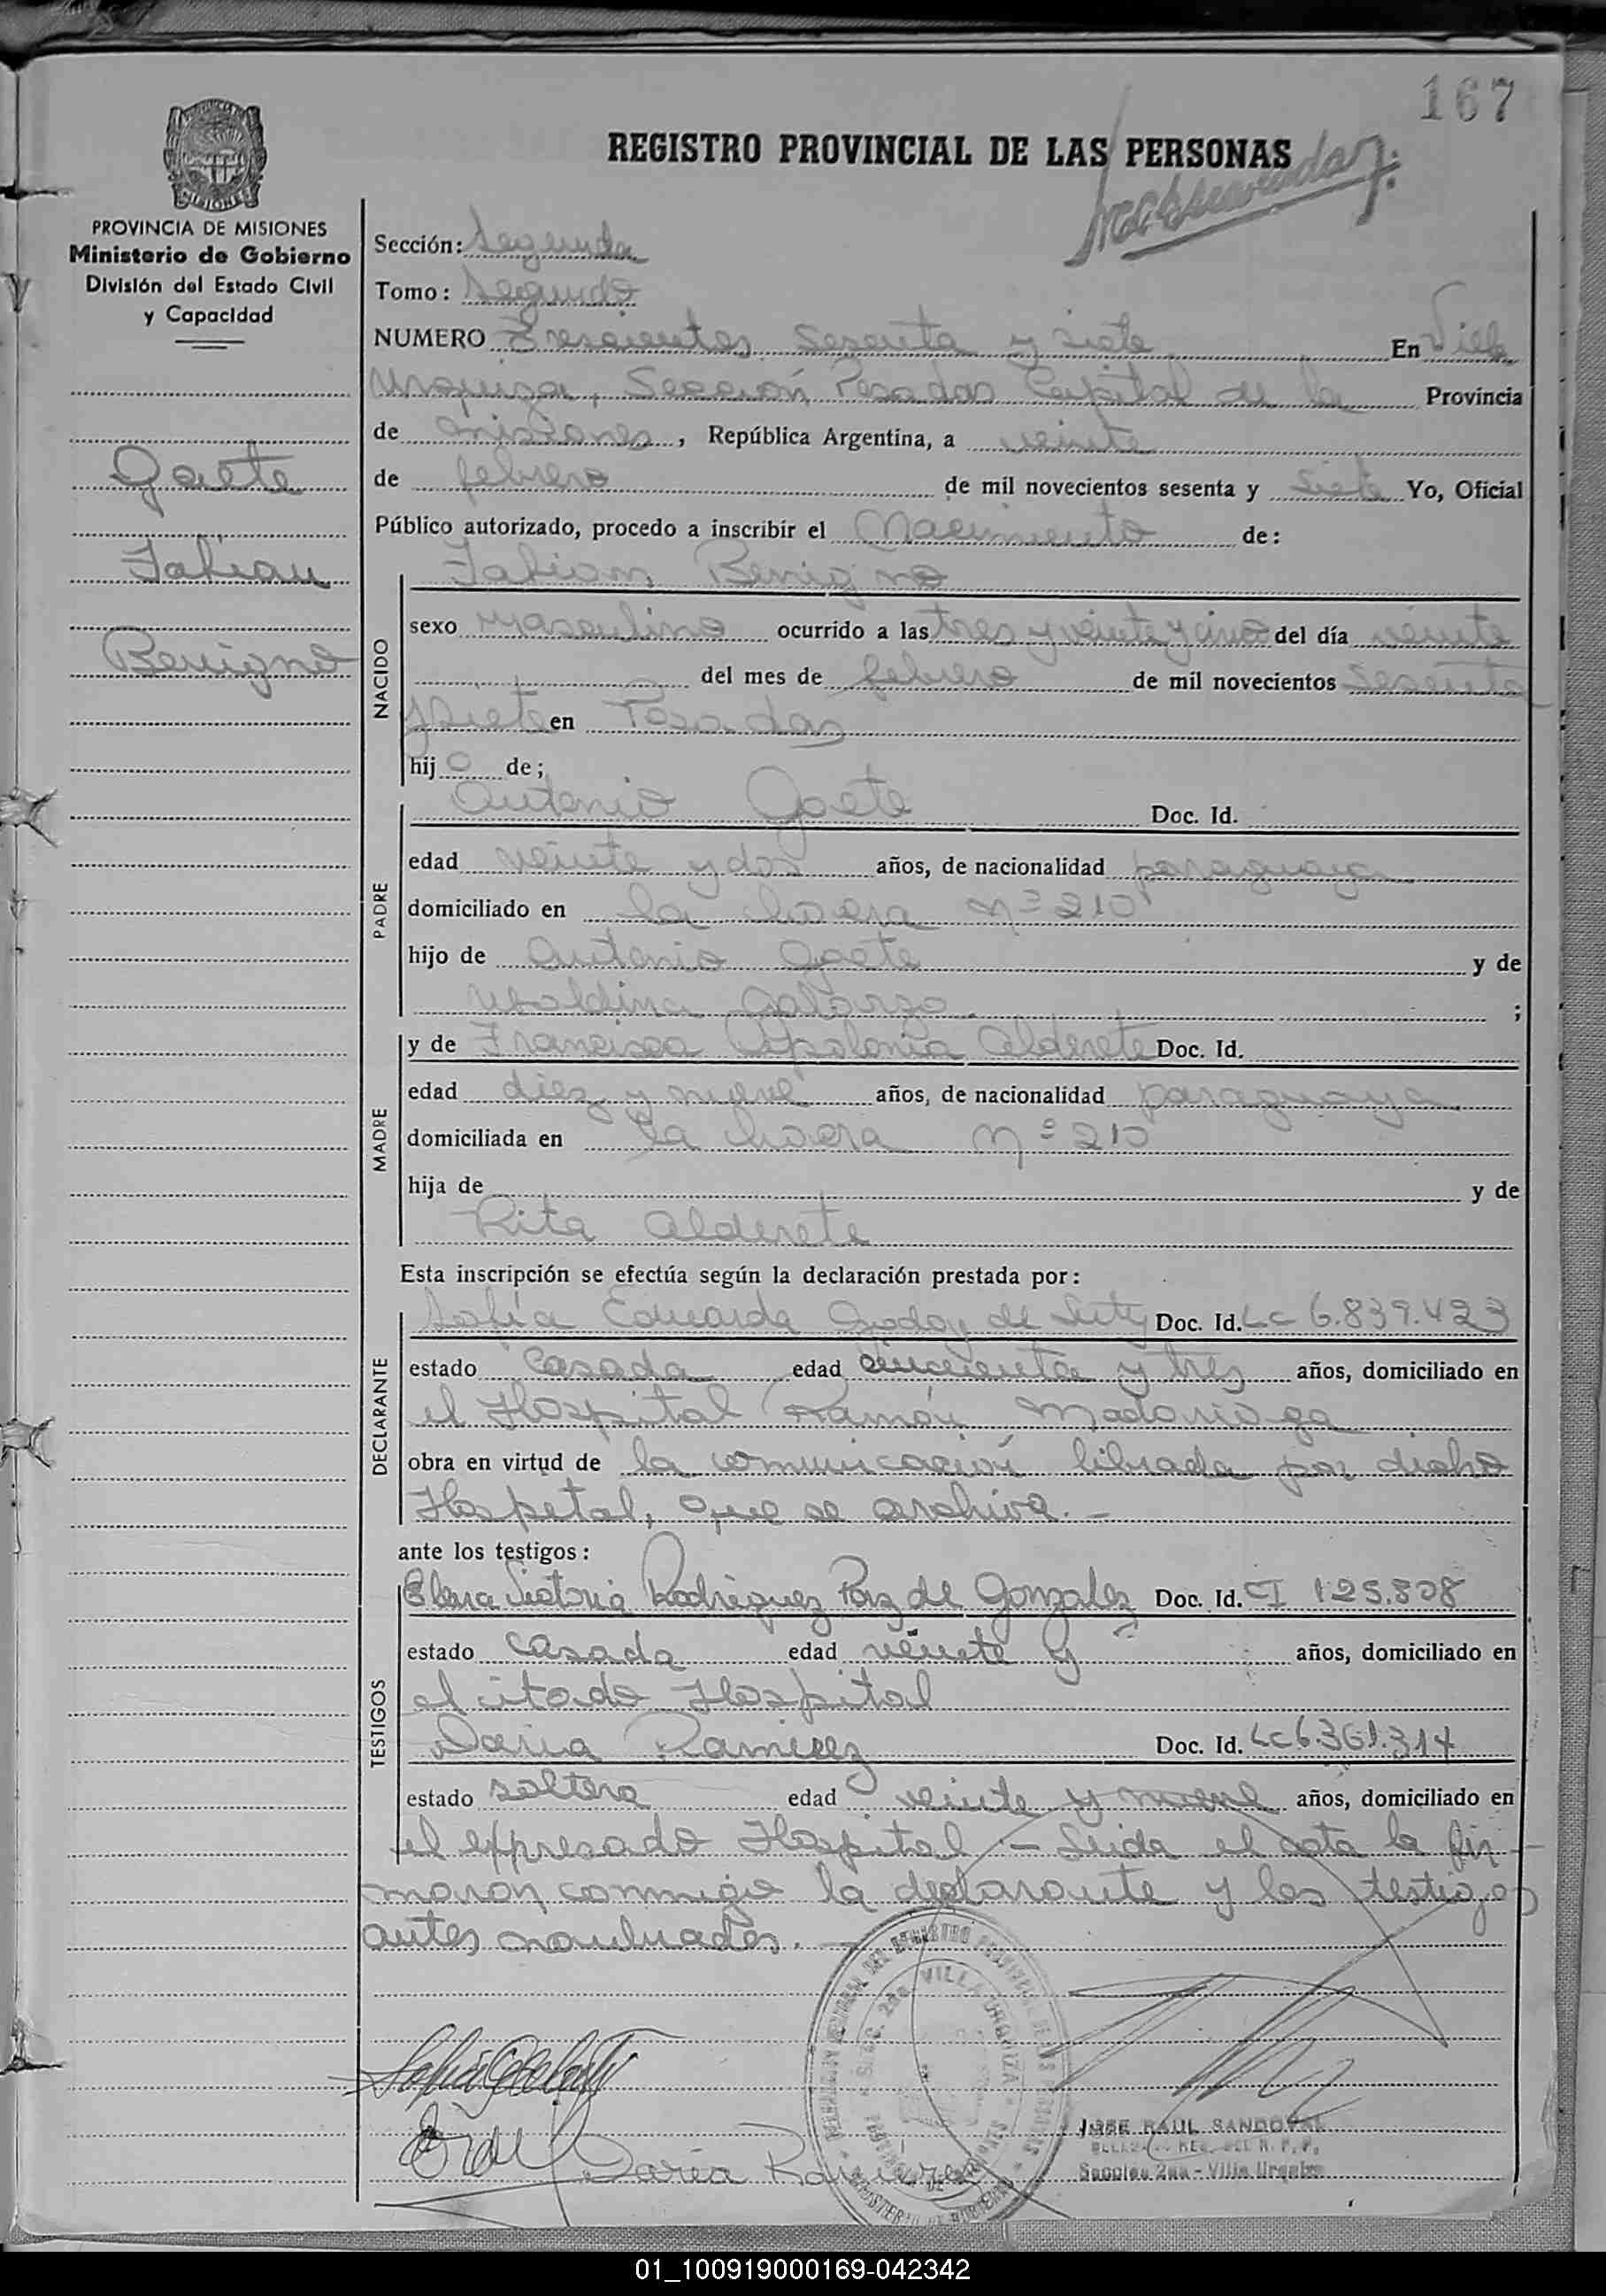 167
REGISTRO PROVINCIAL DE LAS PERSONAS
PROVINCIA DE MISIONES
Ministerio de Gobierno
División del Estado Civil
y Capacidad
Gaete
Fabian
Benigno
Sección: Segunda
Tomo: Segundo
NUMERO Trescientos Sesenta y siete En Villa
Urquiza, Sección Posadas Capital de la Provincia
de Misiones, República Argentina, a veinte
de febrero de mil novecientos sesenta y siete Yo, Oficial
Público autorizado, procedo a inscribir el Nacimiento de:
NACIDO
Fabian Benigno
sexo Masculino ocurrido a las tres y veinte y cinco del día veinte
del mes de febrero de mil novecientos sesenta
y siete en Posadas
hijo de;
PADRE
Antonio Gaete Doc. Id.
edad veinte y dos años, de nacionalidad paraguaya
domiciliado en la Nº 210
hijo de Antonio Gaete y de
Ubaldina Galarza ;
MADRE
y de Francisca Apolonia Alderete Doc. Id.
edad diez y nueve años, de nacionalidad paraguaya
domiciliada en la Nº 210
hija de y de
Rita Alderete
Esta inscripción se efectúa según la declaración prestada por:
DECLARANTE
Sofía Eduarda Godoy de Doc. Id. LC 6.839.423
estado Casada edad cincuenta y tres años, domiciliado en
el Hospital Ramón Madariaga
obra en virtud de la comunicación librada por dicho
Hospital, que se archiva.-
ante los testigos:
TESTIGOS
Elena Victoria Rodriguez Paz de Gonzalez Doc. Id. CI 125.808
estado Casada edad veinte y años, domiciliado en
el citado Hospital
Daria Ramirez Doc. Id. LC 6.361.314
estado soltera edad veinte y nueve años, domiciliado en
el expresado Hospital.- Leida el acta la fir-
maron conmigo la declarante y los testigos
antes nombrados.-
Daria Ramirez
VILLA URQUIZA
JOSE RAUL SANDOVAL
Sección 2da - Villa Urquiza
01_100919000169-042342